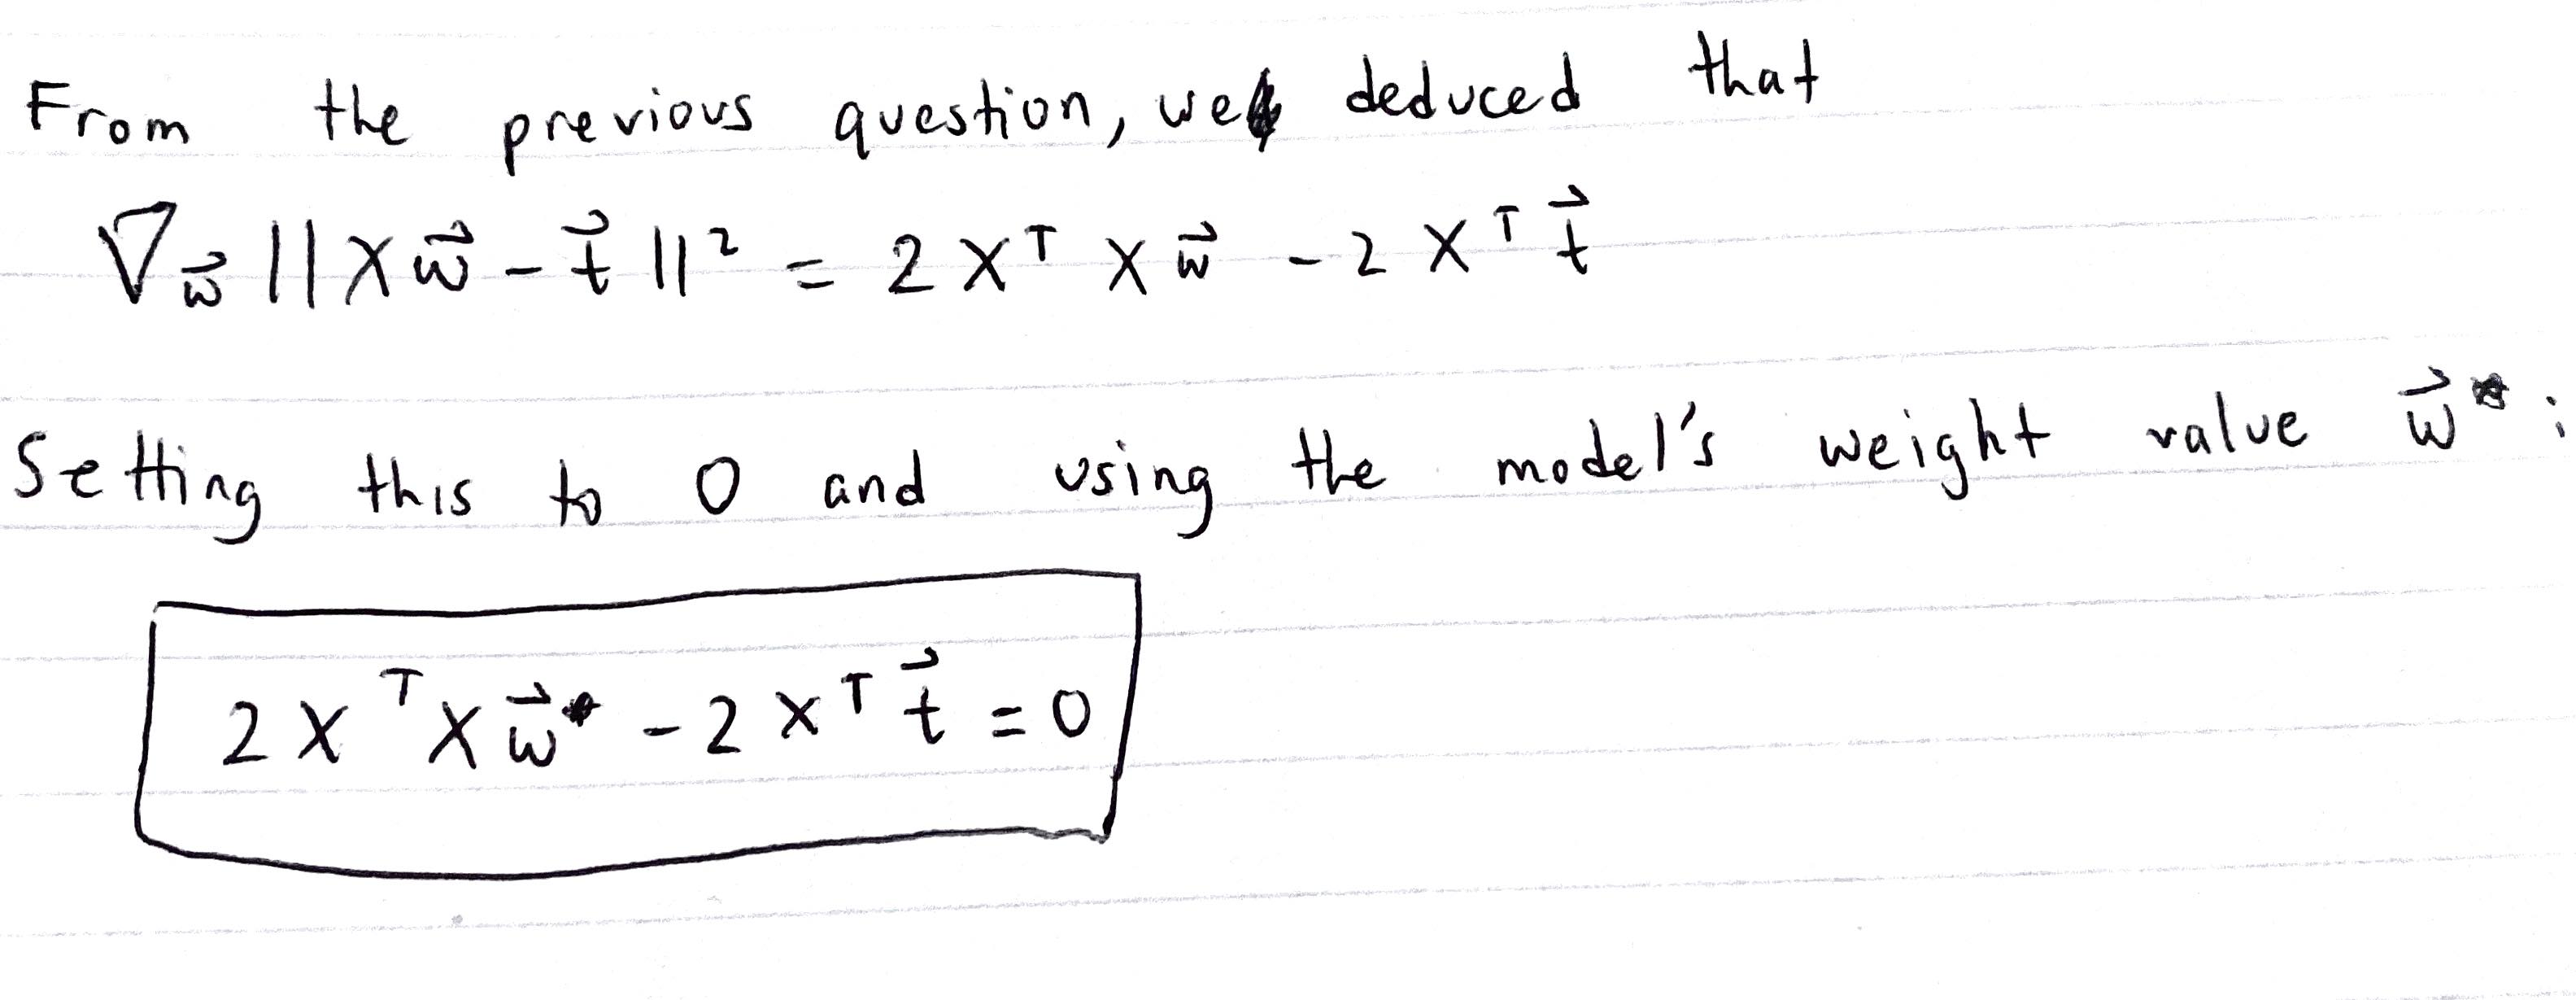 From the previous question, we deduced that
∇w⃗ ||Xw⃗ - t⃗||² = 2XᵀXw⃗ - 2Xᵀt⃗
Setting this to 0 and using the model's weight value w⃗*:
2XᵀXw⃗* - 2Xᵀt⃗ = 0